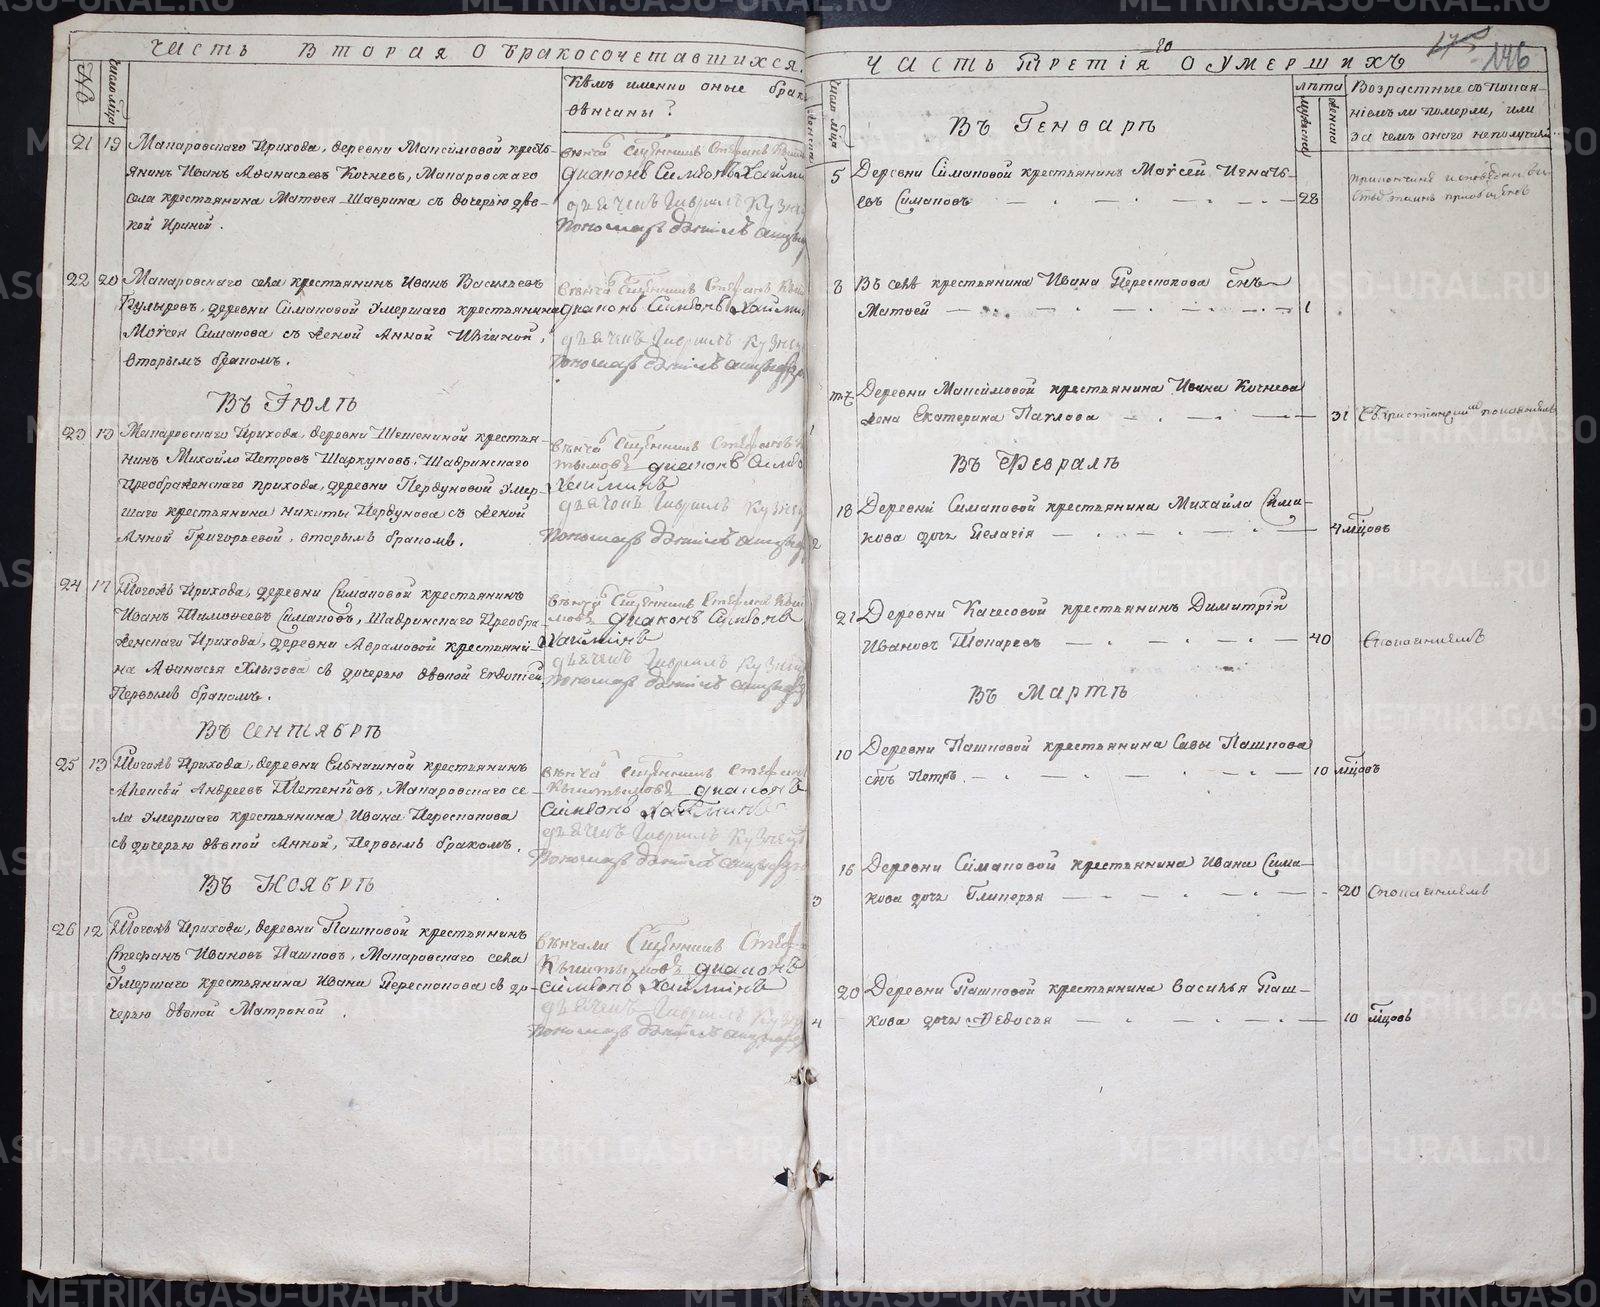 Часть Вторая О Бракосочетавшихся.
№
Число м҃ца
Кѣмъ именно оные брак
вѣнчаны?
21 19 Макаровскаго Прихода, деревни Максимовой кресть-
янинъ Иванъ Аѳанасьевъ Кочневъ, Макаровскаго
села крестьянина Матѳея Шаврина съ дочерью дѣв-
кой Ириной.
диаконъ Симеонъ Хаймин
дьячекъ Гаврилъ Кузнец
Пономарь Данилъ
22 20 Макаровскаго села крестьянинъ Иванъ Васильевъ
Булыревъ, деревни Симаковой Умершаго крестьянина
Моѵсея Симакова съ женой Анной
вторымъ бракомъ.
диаконъ Симеонъ Хаймин
дьячекъ Гаврилъ Кузнец
Пономарь Данилъ
Въ Іюлѣ
23 13 Макаровскаго Прихода, деревни Шешениной крестья-
нинъ Михайло Петровъ Шаркуновъ, Шадринскаго
Преображенскаго прихода, деревни Пердуновой Умер-
шаго крестьянина Никиты Пердунова съ женой
Анной Григорьевой, вторымъ бракомъ.
диаконъ Симео
Хайминъ
дьячекъ Гаврилъ Кузнец
Пономарь Данилъ
24 17 Тогожъ Прихода, деревни Симаковой крестьянинъ
Иванъ Тимоѳеевъ Симаковъ, Шадринскаго Преобра-
женскаго Прихода, деревни Абрамовой крестьяни-
на Аѳанасья Хлызова съ дочерью дѣвкой Евдокіей
Первымъ бракомъ.
диаконъ Симеонъ
Хайминъ
дьячекъ Гаврилъ Кузнец
Пономарь Данилъ
Въ Сентябрѣ
25 13 Тогожъ Прихода, деревни крестьянинъ
Алексѣй Андреевъ Макаровскаго се-
ла Умершаго крестьянина Ивана Перескокова
съ дочерью дѣвкой Анной, Первымъ бракомъ.
Кыштымовъ диаконъ
Симеонъ Хайминъ
дьячекъ Гаврилъ Кузнец
Пономарь Данилъ
Въ Ноябрѣ
26 12 Тогожъ Прихода, деревни Пашковой крестьянинъ
Стефанъ Ивановъ Пашковъ, Макаровскаго села
Умершаго крестьянина Ивана Перескокова съ до-
черью дѣвкой Матроной.
вѣнчали Стеф
Кыштымовъ диаконъ
Симеонъ Хайминъ
дьячекъ Гаврилъ Кузн
Пономарь Данилъ
20
146
Часть Третія О Умершихъ
Число м҃ца
лѣта
мужеска
женска
Возрастные съ покая-
ніемъ ли померли, или
за чемъ онаго не получили
Въ Генварѣ
5 Деревни Симаковой крестьянинъ Моѵсей Игнать-
евъ Симаковъ 28
8 Въ селѣ крестьянина Ивана Перескокова сн҃ъ
Матѳей 1
Деревни Максимовой крестьянина Ивана Кочнева
жена Екатерина Павлова 31
Въ Февралѣ
18 Деревни Симаковой крестьянина Михайла Сима-
кова дочь Пелагія 4 мц҃овъ
2
21 Деревни Качесовой крестьянинъ Димитрій
Ивановъ Токаревъ 40 Спокаяніемъ
Въ Мартѣ
10 Деревни Пашковой крестьянина Савы Пашкова
сн҃ъ Петръ 10 мц҃овъ
16 Деревни Симаковой крестьянина Ивана Сима-
3 кова дочь Гликерья 20 Спокаяніемъ
20 Деревни Пашковой крестьянина Василья Паш-
4 кова дочь Ѳедосья 10 мц҃овъ
METRIKI.GASO-URAL.RU